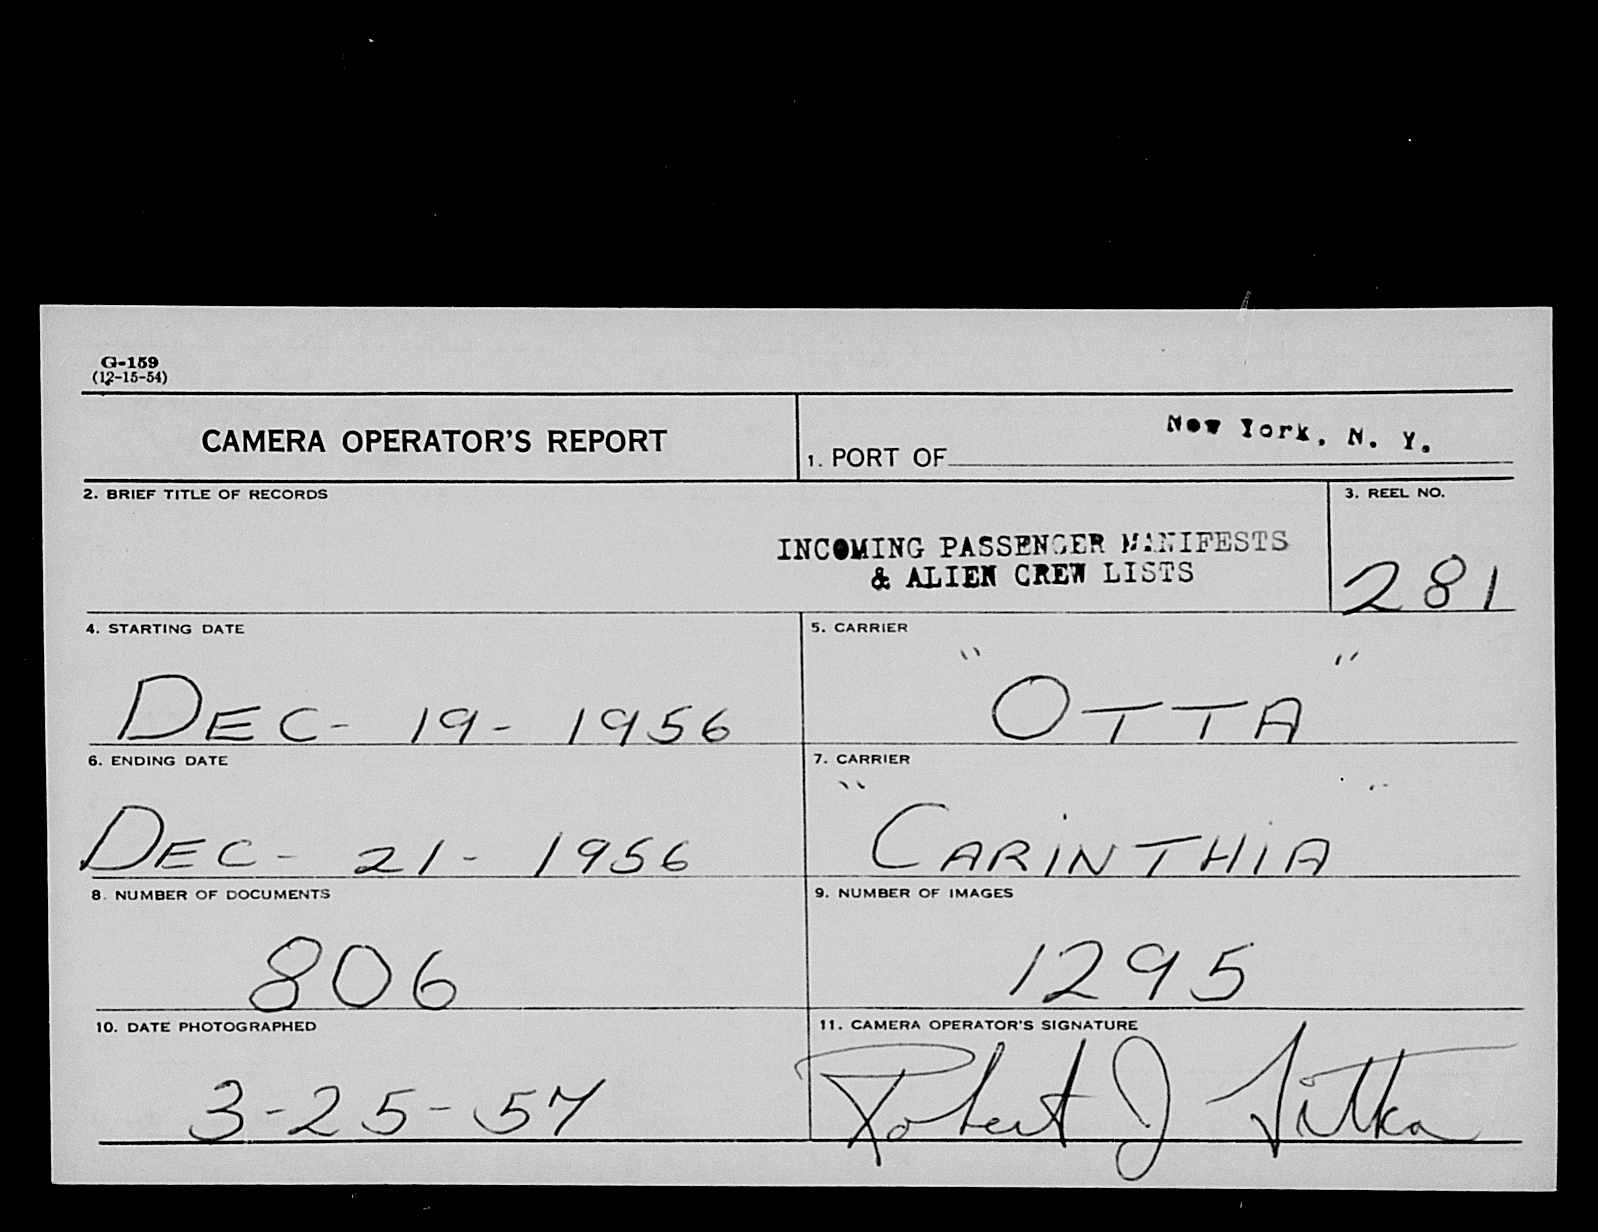 G-159
(12-15-54)
CAMERA OPERATOR'S REPORT
1. PORT OF New York, N. Y.
2. BRIEF TITLE OF RECORDS
INCOMING PASSENGER MANIFESTS
& ALIEN CREW LISTS
3. REEL NO.
281
4. STARTING DATE
DEC- 19- 1956
5. CARRIER
"OTTA"
6. ENDING DATE
DEC- 21- 1956
7. CARRIER
"CARINTHIA"
8. NUMBER OF DOCUMENTS
806
9. NUMBER OF IMAGES
1295
10. DATE PHOTOGRAPHED
3-25-57
11. CAMERA OPERATOR'S SIGNATURE
Robert J